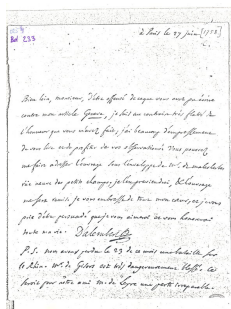 Rel 233
à Paris le 27 juin [1758]
Bien loin, monsieur, d'être offensé de ce que vous avez pu écrire
contre mon article Genève, je suis au contraire très flatté de
l'honneur que vous m'avez fait, j'ai beaucoup d'empressement
de vous lire et de profiter de vos observations. Vous pouvez
me faire adresser l'ouvrage sous l'enveloppe de Mr. de malesherbes
rue neuve des petits champs, je l'en préviendrai, & l'ouvrage
me sera remis. je vous embrasse de tout mon cœur, et je vous
prie d'être persuadé que je vous aimerai et vous honorerai
toute ma vie. Dalembert
P.S. nous avons perdu le 23 de ce mois une bataille sur
le Rhin. Mr. de Gisors est très dangereusement blessé. ce
seroit pour notre ami une perte irréparable.